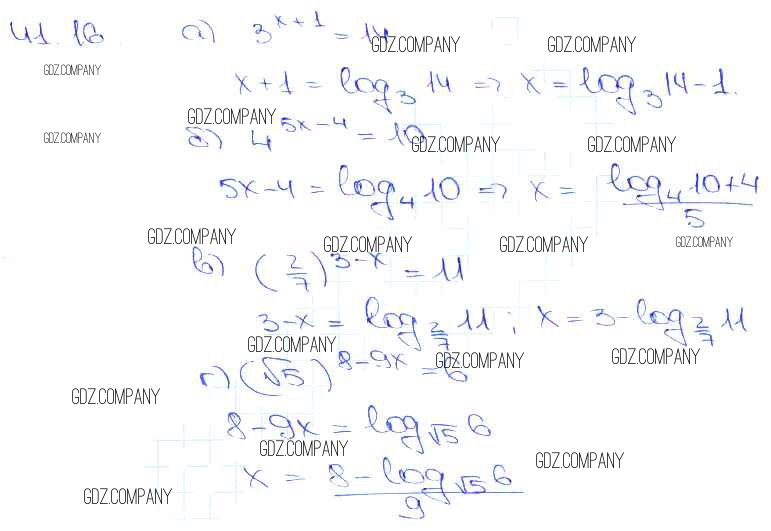 41.16 а) 3^{x+1} = 14
GDZ.COMPANY GDZ.COMPANY
GDZ.COMPANY
x+1 = log_3 14 => x = log_3 14 - 1.
GDZ.COMPANY
б) 4^{5x-4} = 10
GDZ.COMPANY GDZ.COMPANY GDZ.COMPANY
5x-4 = log_4 10 => x = \frac{log_4 10+4}{5}
GDZ.COMPANY GDZ.COMPANY GDZ.COMPANY GDZ.COMPANY
в) (\frac{2}{7})^{3-x} = 11
3-x = log_{\frac{2}{7}} 11; x = 3-log_{\frac{2}{7}} 11
GDZ.COMPANY GDZ.COMPANY GDZ.COMPANY
г) (√5)^{8-9x} = 6
GDZ.COMPANY
8-9x = log_{√5} 6
GDZ.COMPANY GDZ.COMPANY
x = \frac{8-log_{√5} 6}{9}
GDZ.COMPANY